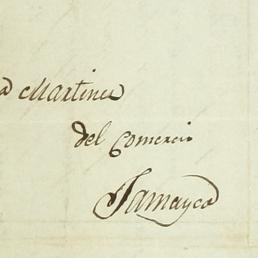 a Martines
del Comercio
Jamayca